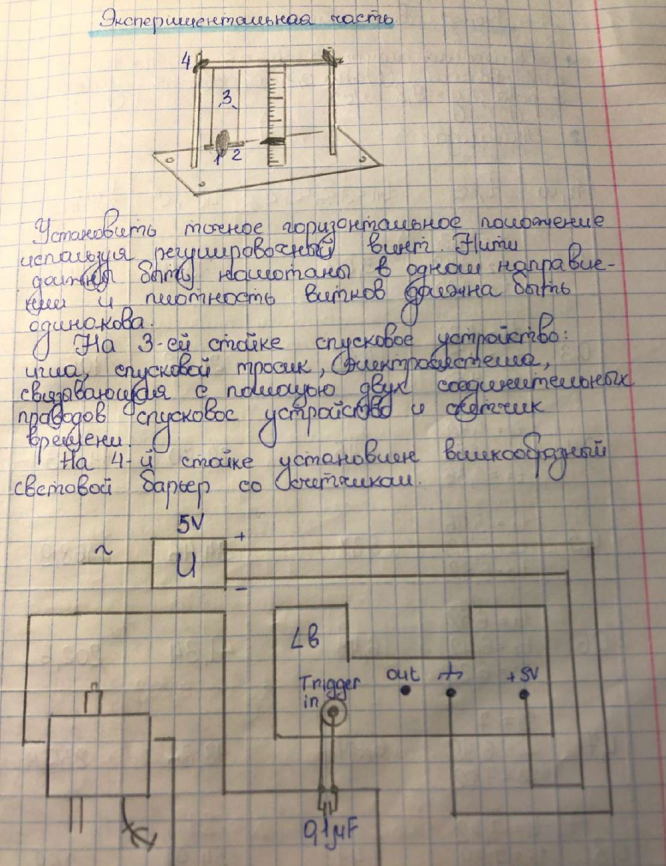 Экспериментальная часть
4
3
1 2
Установить точное горизонтальное положение
используя регулировочный винт. Нити
должны быть намотаны в одном направле-
нии и плотность витков должна быть
одинакова.
На 3-ей стойке спусковое устройство:
игла, спусковой тросик, электросистема,
связывающая с помощью двух соединительных
проводов спусковое устройство и счётчик
времени.
На 4-й стойке установлен вилкообразный
световой барьер со счетчиком.
5V
~ U + -
LB
Trigger in
out +5V
0,1μF